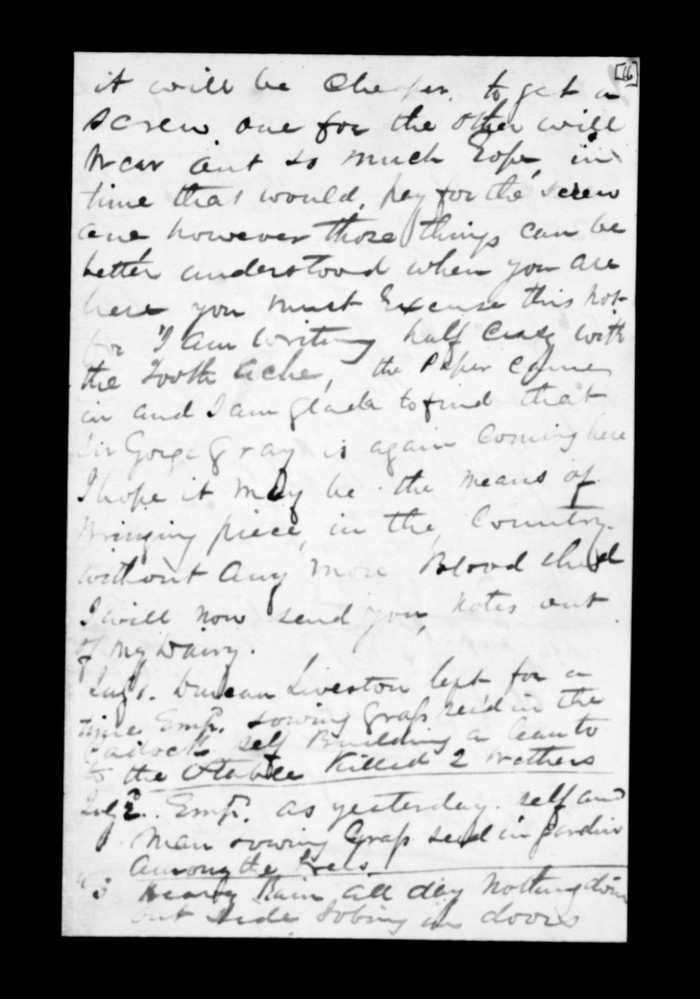 [16]
it will be Cheaper. to get a
screw one for the other will
Wear out so much Rope, in
time that would, pay for the screw
one however those things can be
better understood when you are
here you must Excuse this Not
for I am writing half Crasy with
the Tooth Ache, the Paper Came
in and I am Glade to find that
Sir Gorge Gray is again Coming here
I hope it May be the means of
Bringing piece, in the, Country.
without Any More Blood shed
I will now send you, Notes out
of my Dairy.
July 1. Duncan Liveston left for a
time Emp. sowing Grass seed in the
Padock self Building a Lean to
to the Stable Killed 2 Wethers
July 2. Emp. as yesterday. self and
Man sowing Grass seed in Gardin
Among the trees.
" 3 Heavy Rain all day Nothing doin
out side Jobing in doors